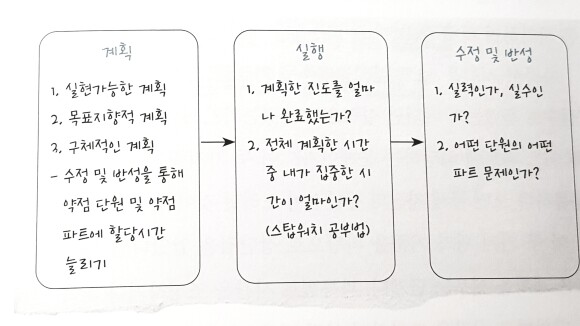 계획
1. 실현가능한 계획
2. 목표지향적 계획
3. 구체적인 계획
- 수정 및 반성을 통해
약점 단원 및 약점
파트에 할당시간
늘리기
실행
1. 계획한 진도를 얼마
나 완료했는가?
2. 전체 계획한 시간
중 내가 집중한 시
간이 얼마인가?
(스탑워치 공부법)
수정 및 반성
1. 실력인가, 실수인
가?
2. 어떤 단원의 어떤
파트 문제인가?